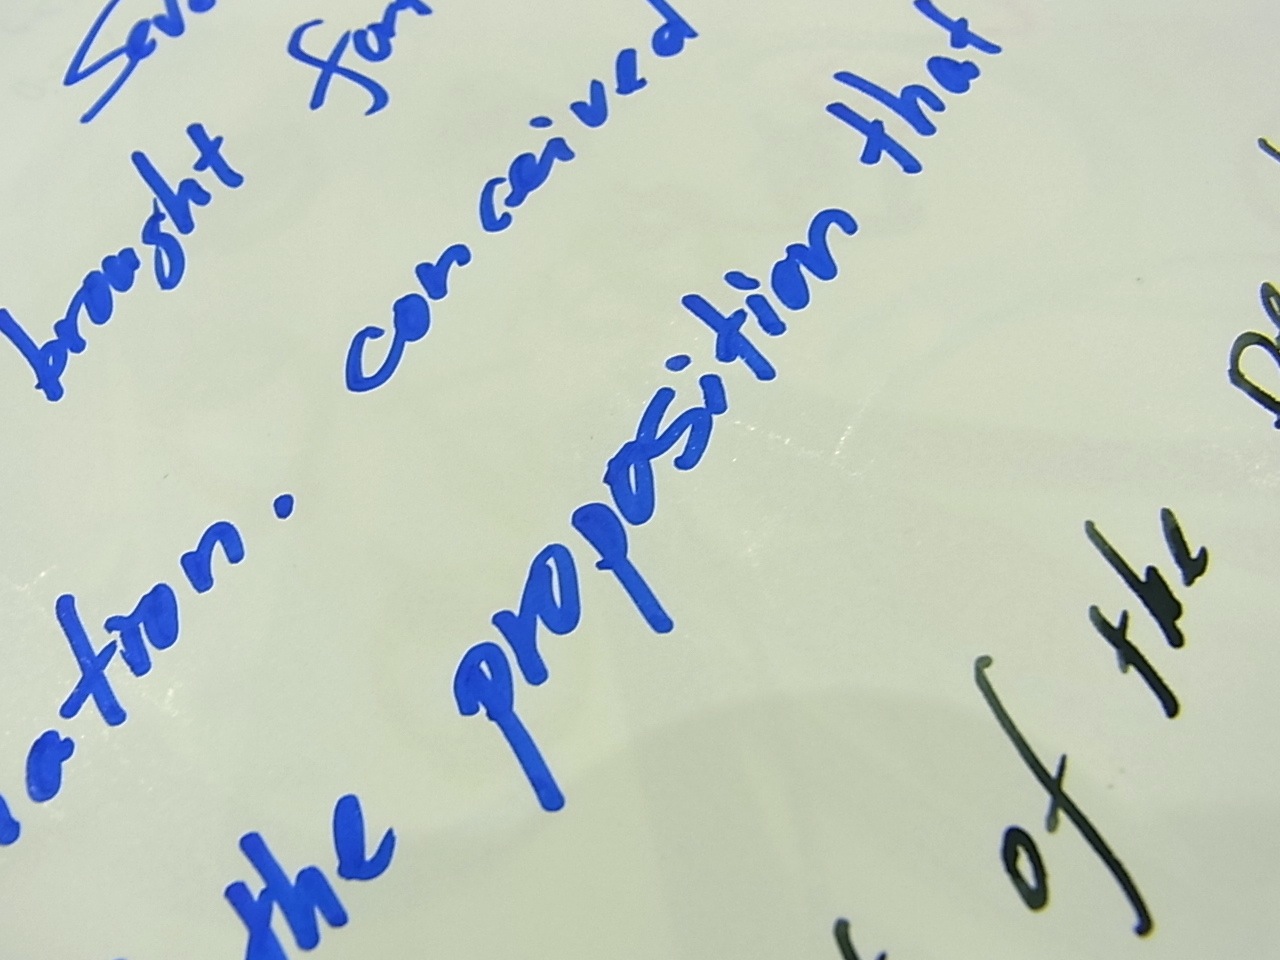 brought
nation. conceived
the proposition that
of the